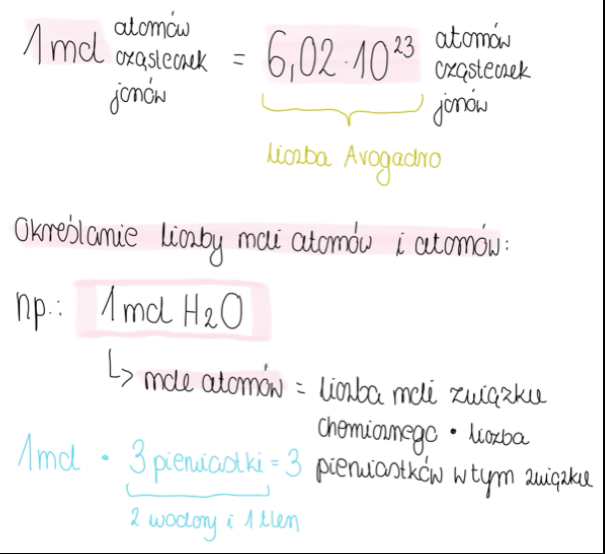 1 mol atomów cząsteczek jonów = 6,02·10²³ atomów cząsteczek jonów
liczba Avogadro
określanie liczby moli atomów i atomów:
np.: 1 mol H₂O
↳ mole atomów = liczba moli związku
chemicznego • liczba
pierwiastków w tym związku
1 mol • 3 pierwiastki = 3
2 wodory i 1 tlen